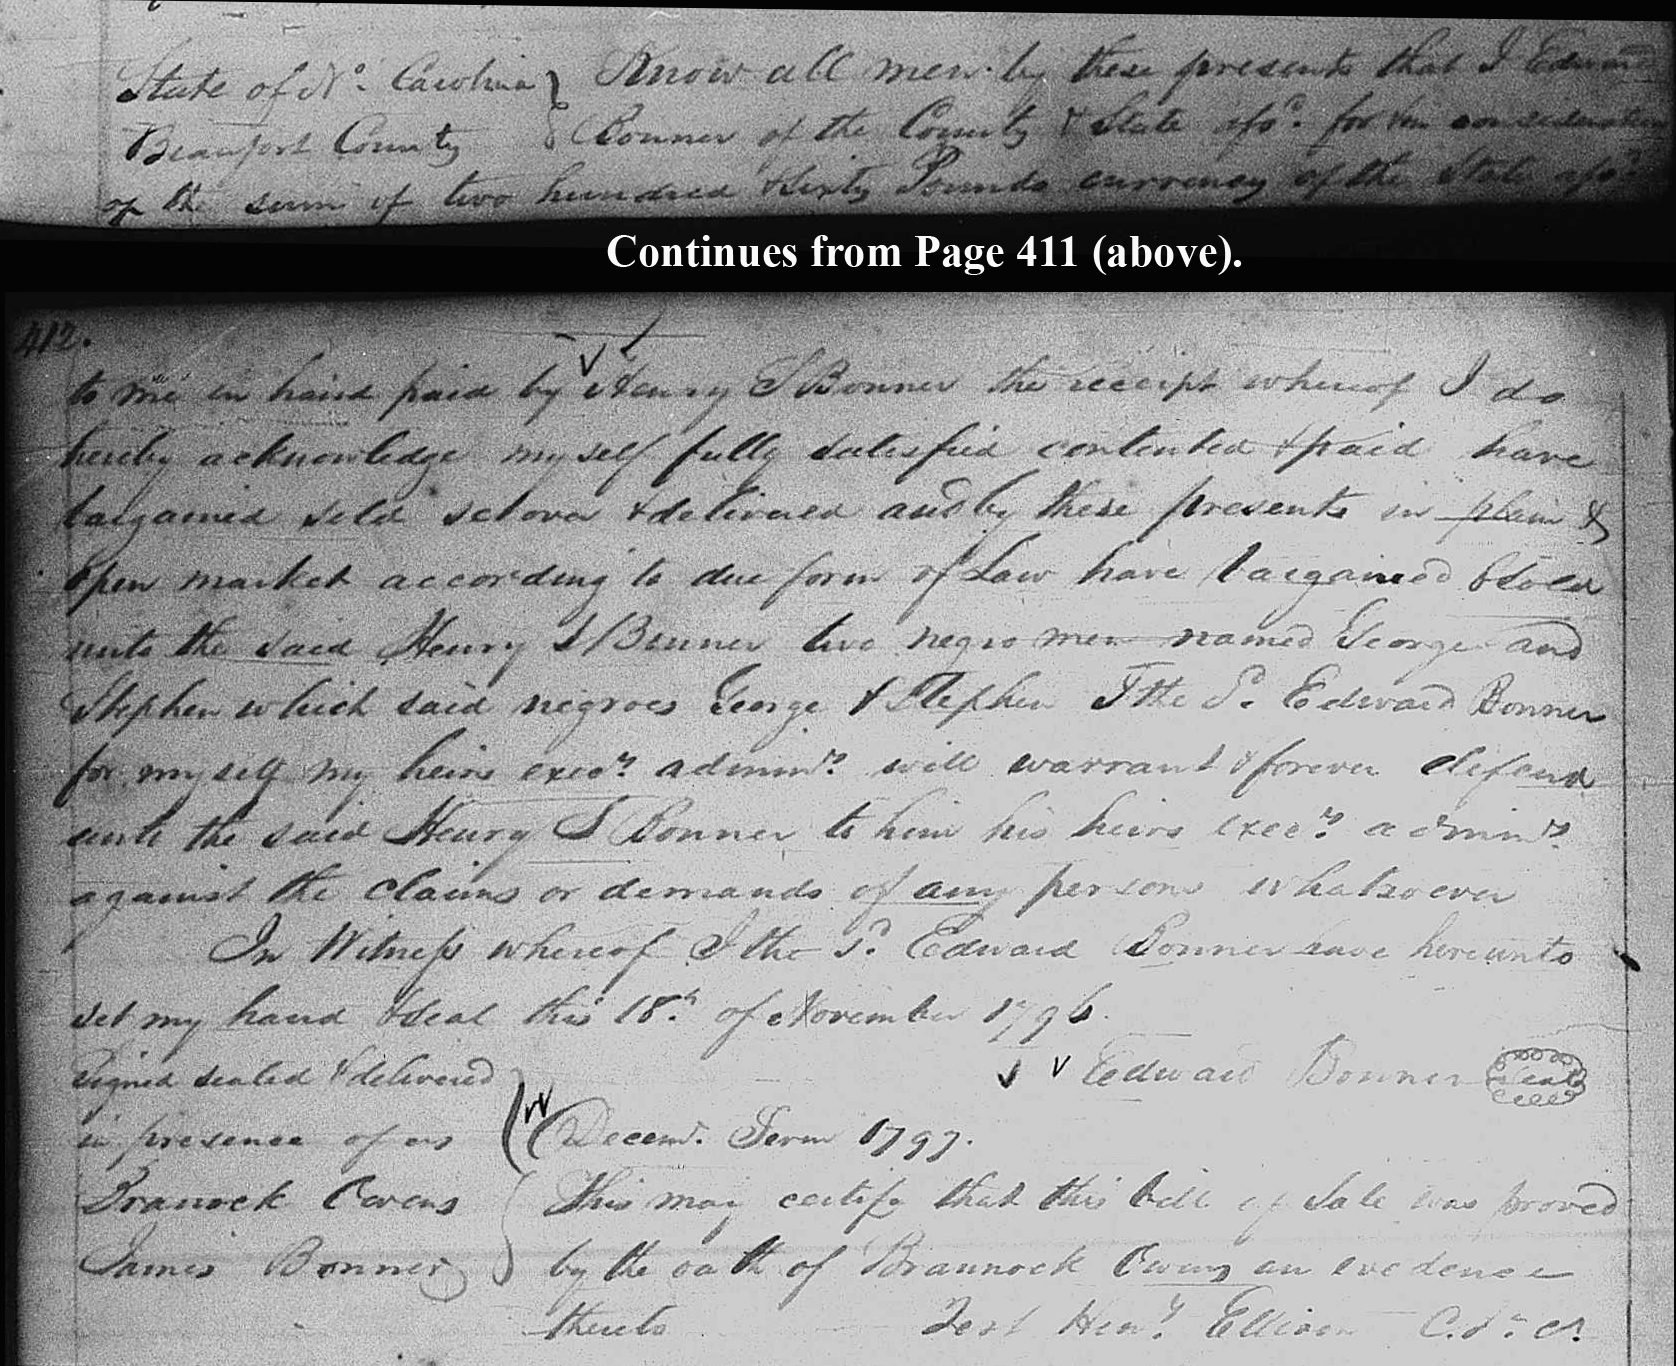 State of No. Carolina } Know all men by these presents that I Edward
Beaufort County } Bonner of the County & State afsd. for & in consideration
of the sum of two hundred & sixty Pounds currency of the State afsd.
Continues from Page 411 (above).
412.
to me in hand paid by Henry S Bonner the receipt whereof I do
hereby acknowledge my self fully satisfied contented & paid have
bargained sold set over & delivered and by these presents in plain &
open market according to due form of Law have bargained & sold
unto the said Henry S Bonner two negro men named George and
Stephen which said negroes George & Stephen I the sd. Edward Bonner
for my self my heirs execrs. adminrs. will warrant & forever defend
unto the said Henry S Bonner to him his heirs execrs. adminrs.
against the claims or demands of any persons whatsoever
In Witness whereof I the sd. Edward Bonner have hereunto
set my hand & seal this 18th. of November 1796.
Signed sealed & delivered Edward Bonner Seal
in presence of us Decemr. Term 1797.
Branock Owens This may certify that this bill of Sale was proved
James Bonner by the oath of Braunock Owens an evedence
thereto Test Heny. Ellison C.